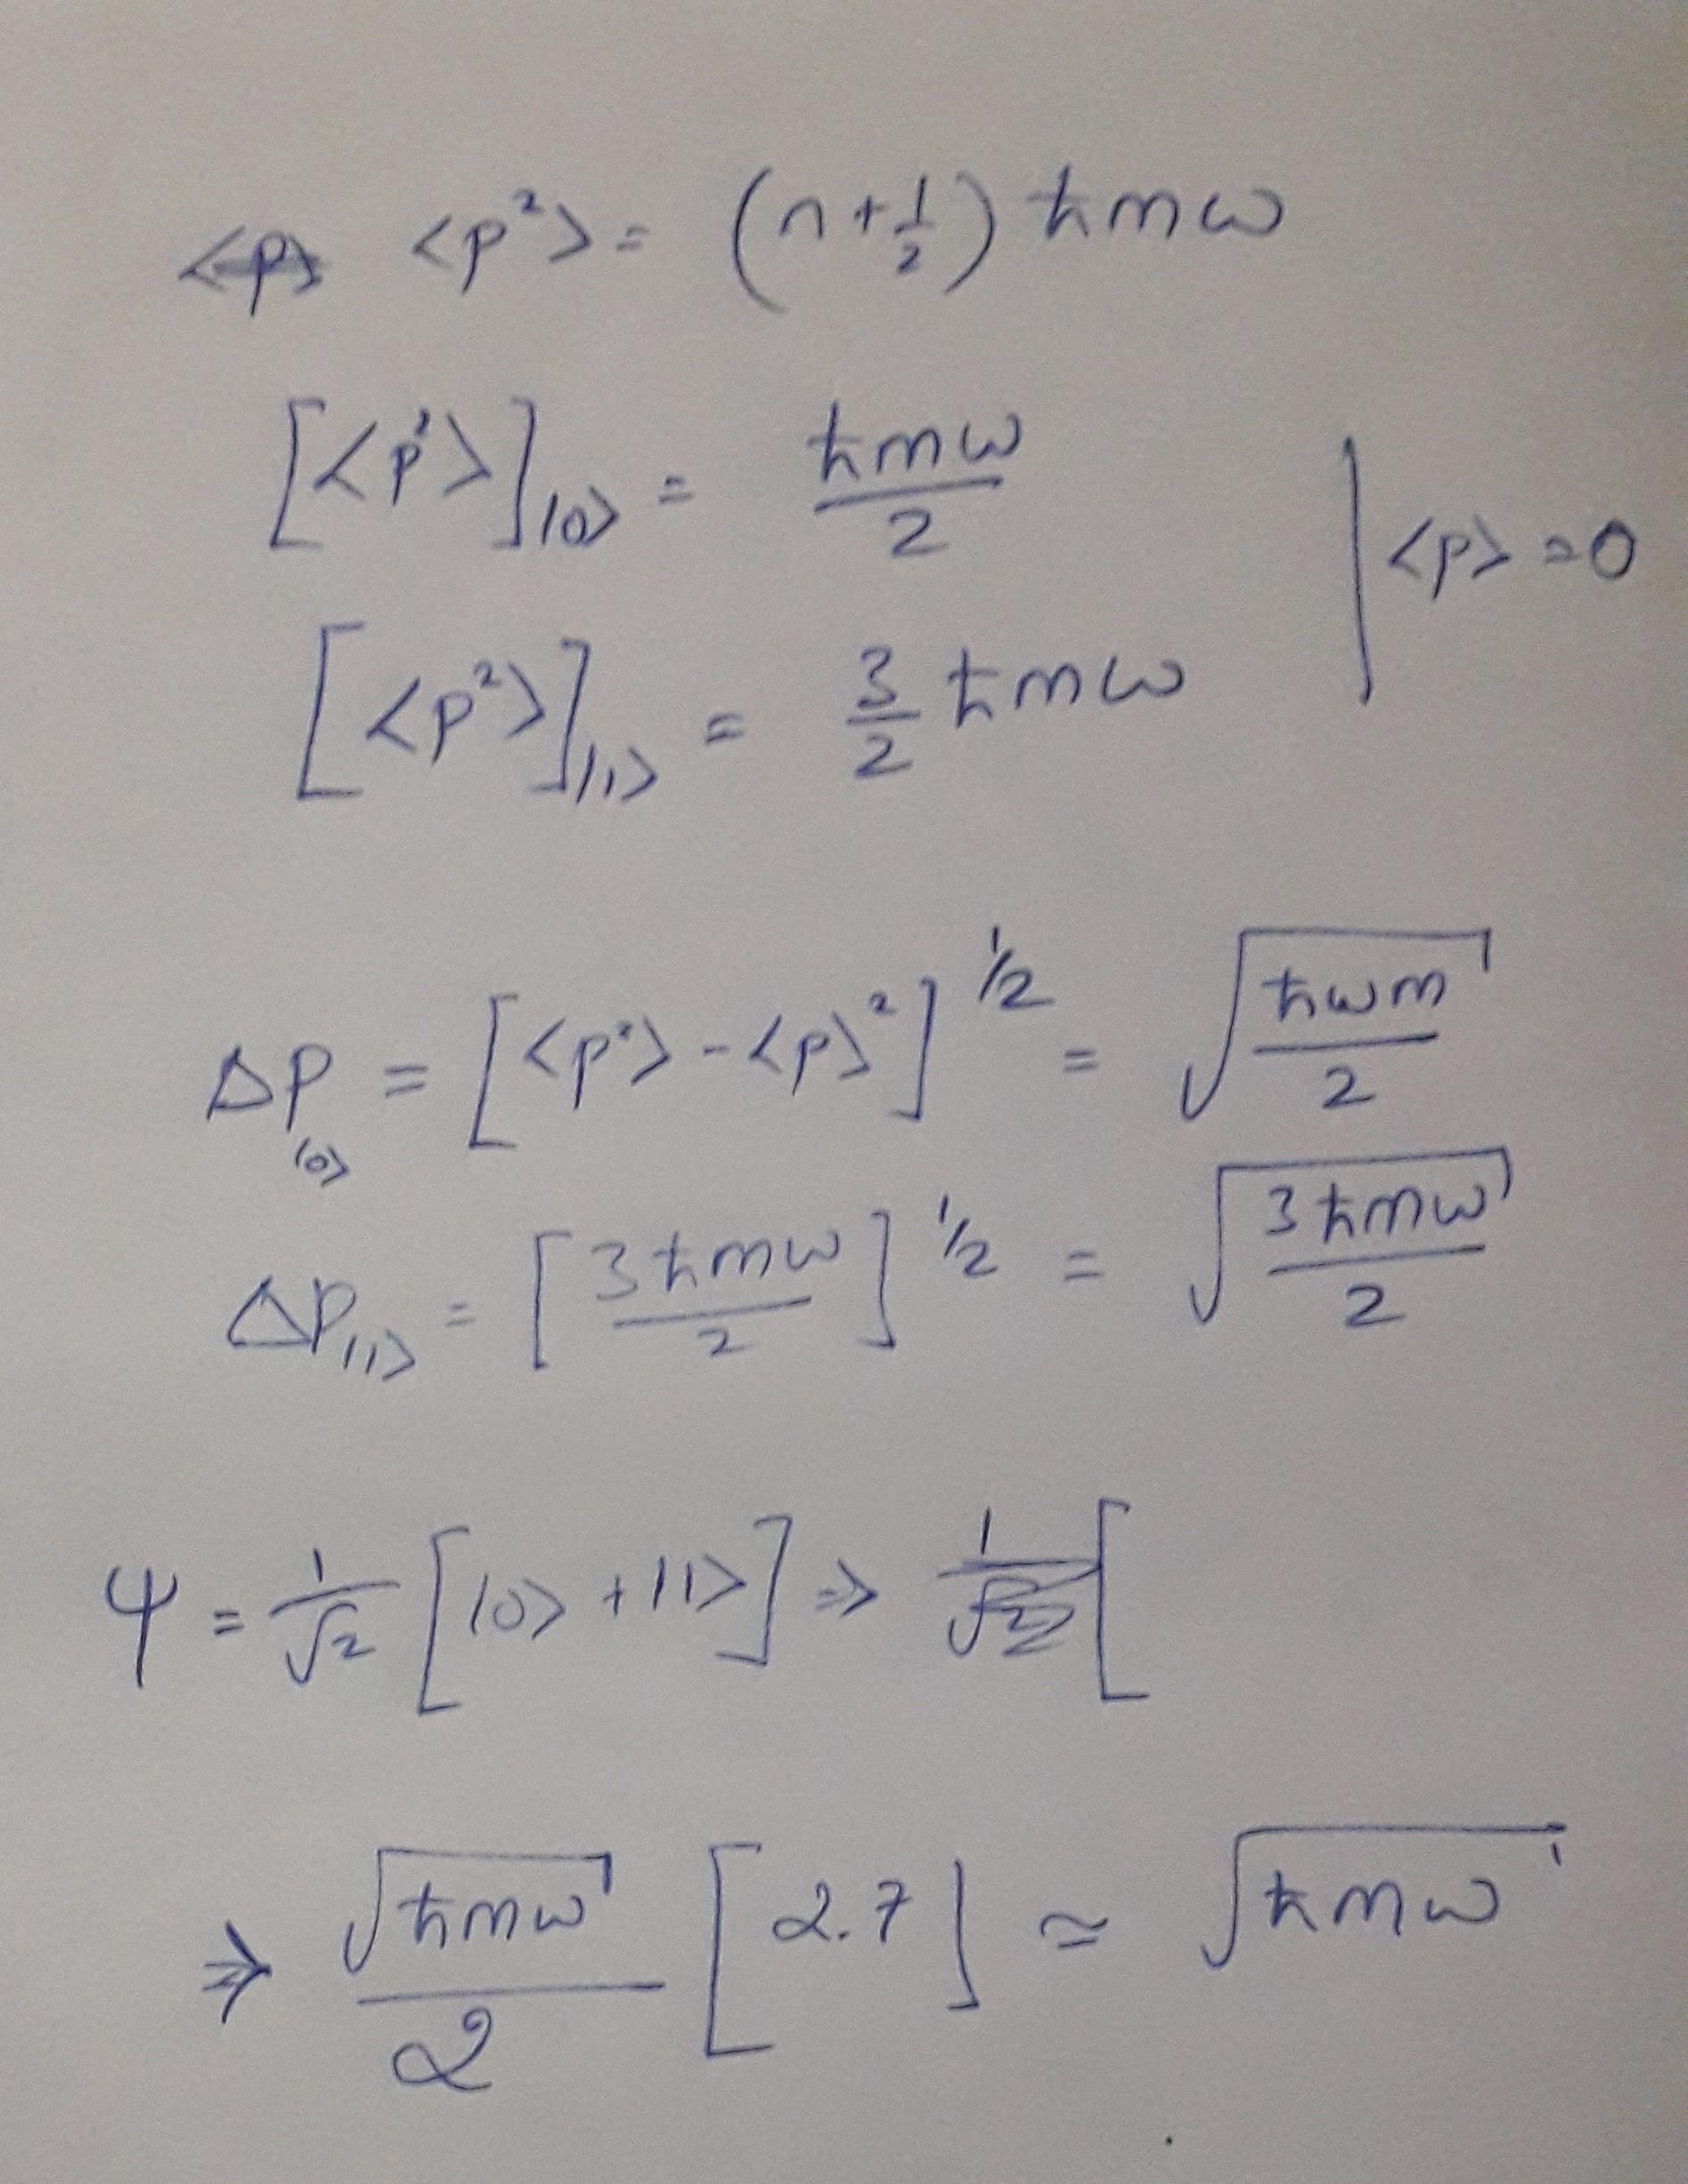 <p> <p²> = (n + 1/2) ħmω
[<p²>]|0> = ħmω/2
<p> = 0
[<p²>]|1> = 3/2 ħmω
Δp|0> = [<p²> - <p>²]^1/2 = √(ħωm/2)
Δp|1> = [3ħmω/2]^1/2 = √(3ħmω/2)
ψ = 1/√2 [|0> + |1>] ⇒ 1/√2 [
⇒ √(ħmω)/2 [2.7] ≃ √(ħmω)